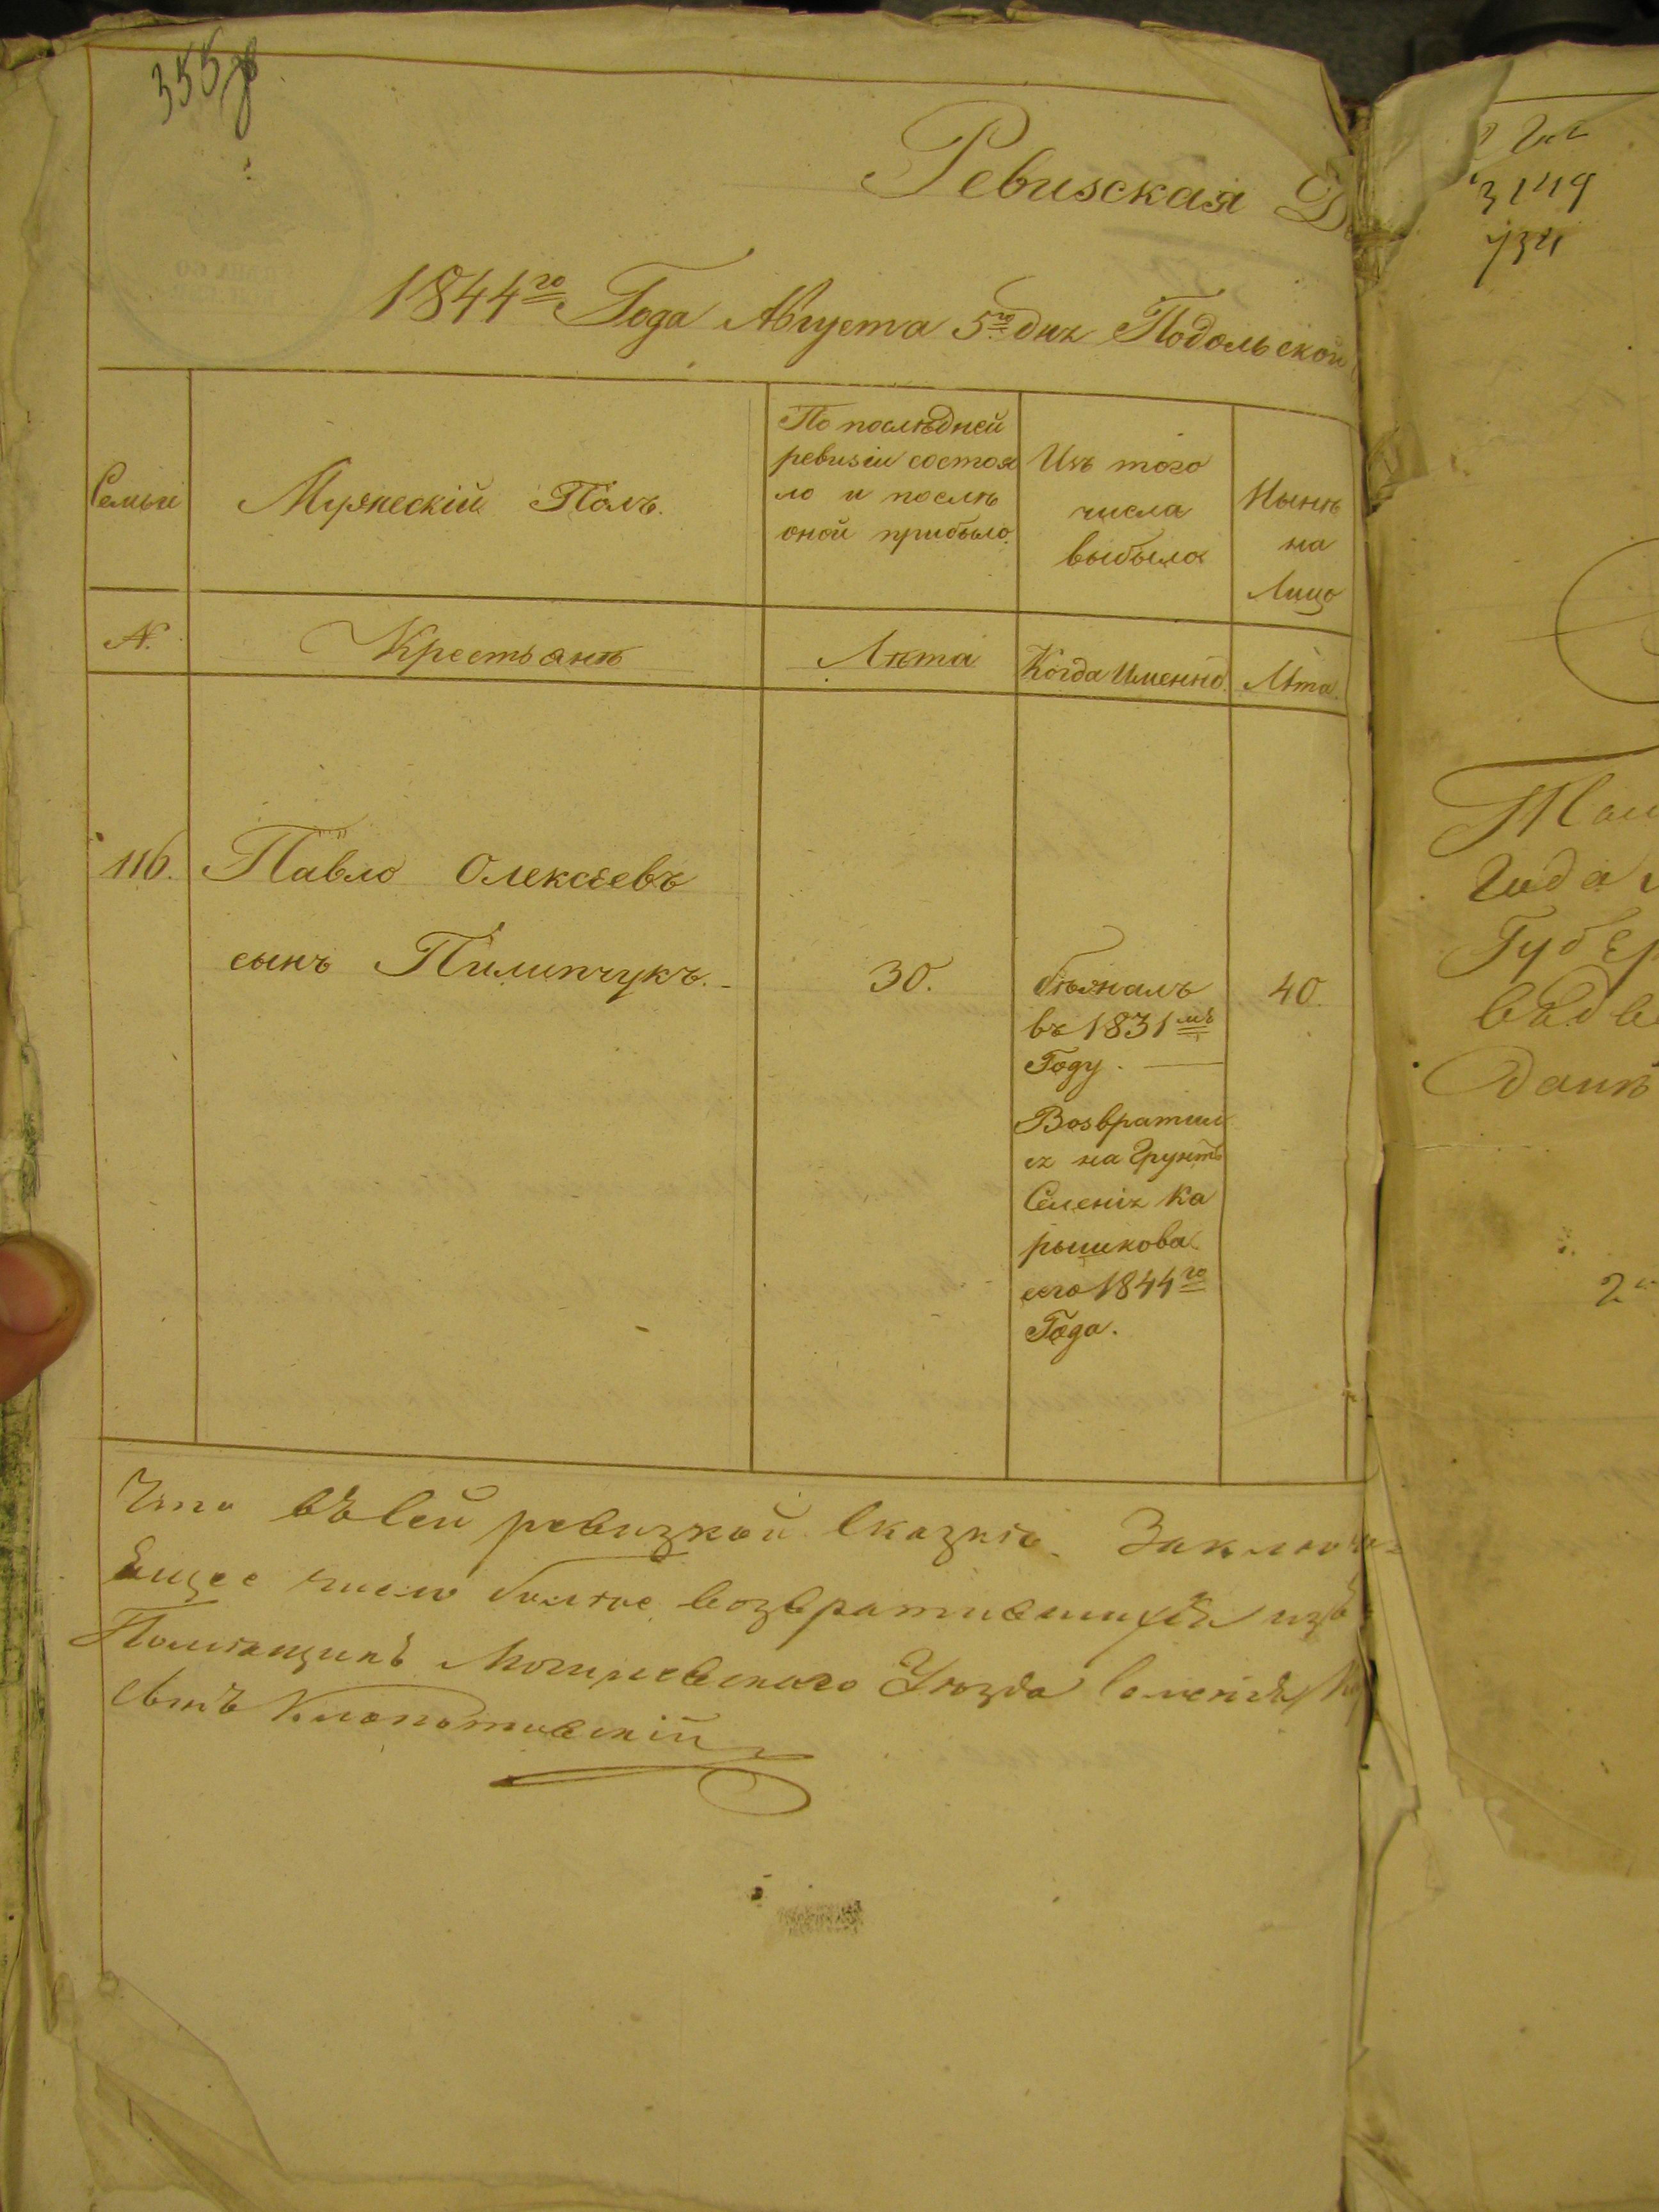 355
Ревизская
1844го Года Августа 5го дня Подольской
Семьи
Мужескій Полъ.
По послѣдней
ревизіи состоя
ло и послѣ
оной прибыло.
Изъ того
числа
выбыло
Нынѣ
на
Лицо
№.
Крестьянѣ
Лѣта
Когда Именно.
Лѣта.
116.
Павло Олексѣевъ
сынъ Пилипчукъ.
30.
бѣжалъ
въ 1831мъ
Году.
Возвратил
ся на Грунтъ
Селенія Ка
рышкова
сего 1844го
Года.
40.
Что въ сей ревизкой Сказкѣ Заключа
ющее число возвратившихся изъ
Помѣщикъ Могилевского Уѣзда Селенія
Клопотовскій
3149
734
Года
Губер